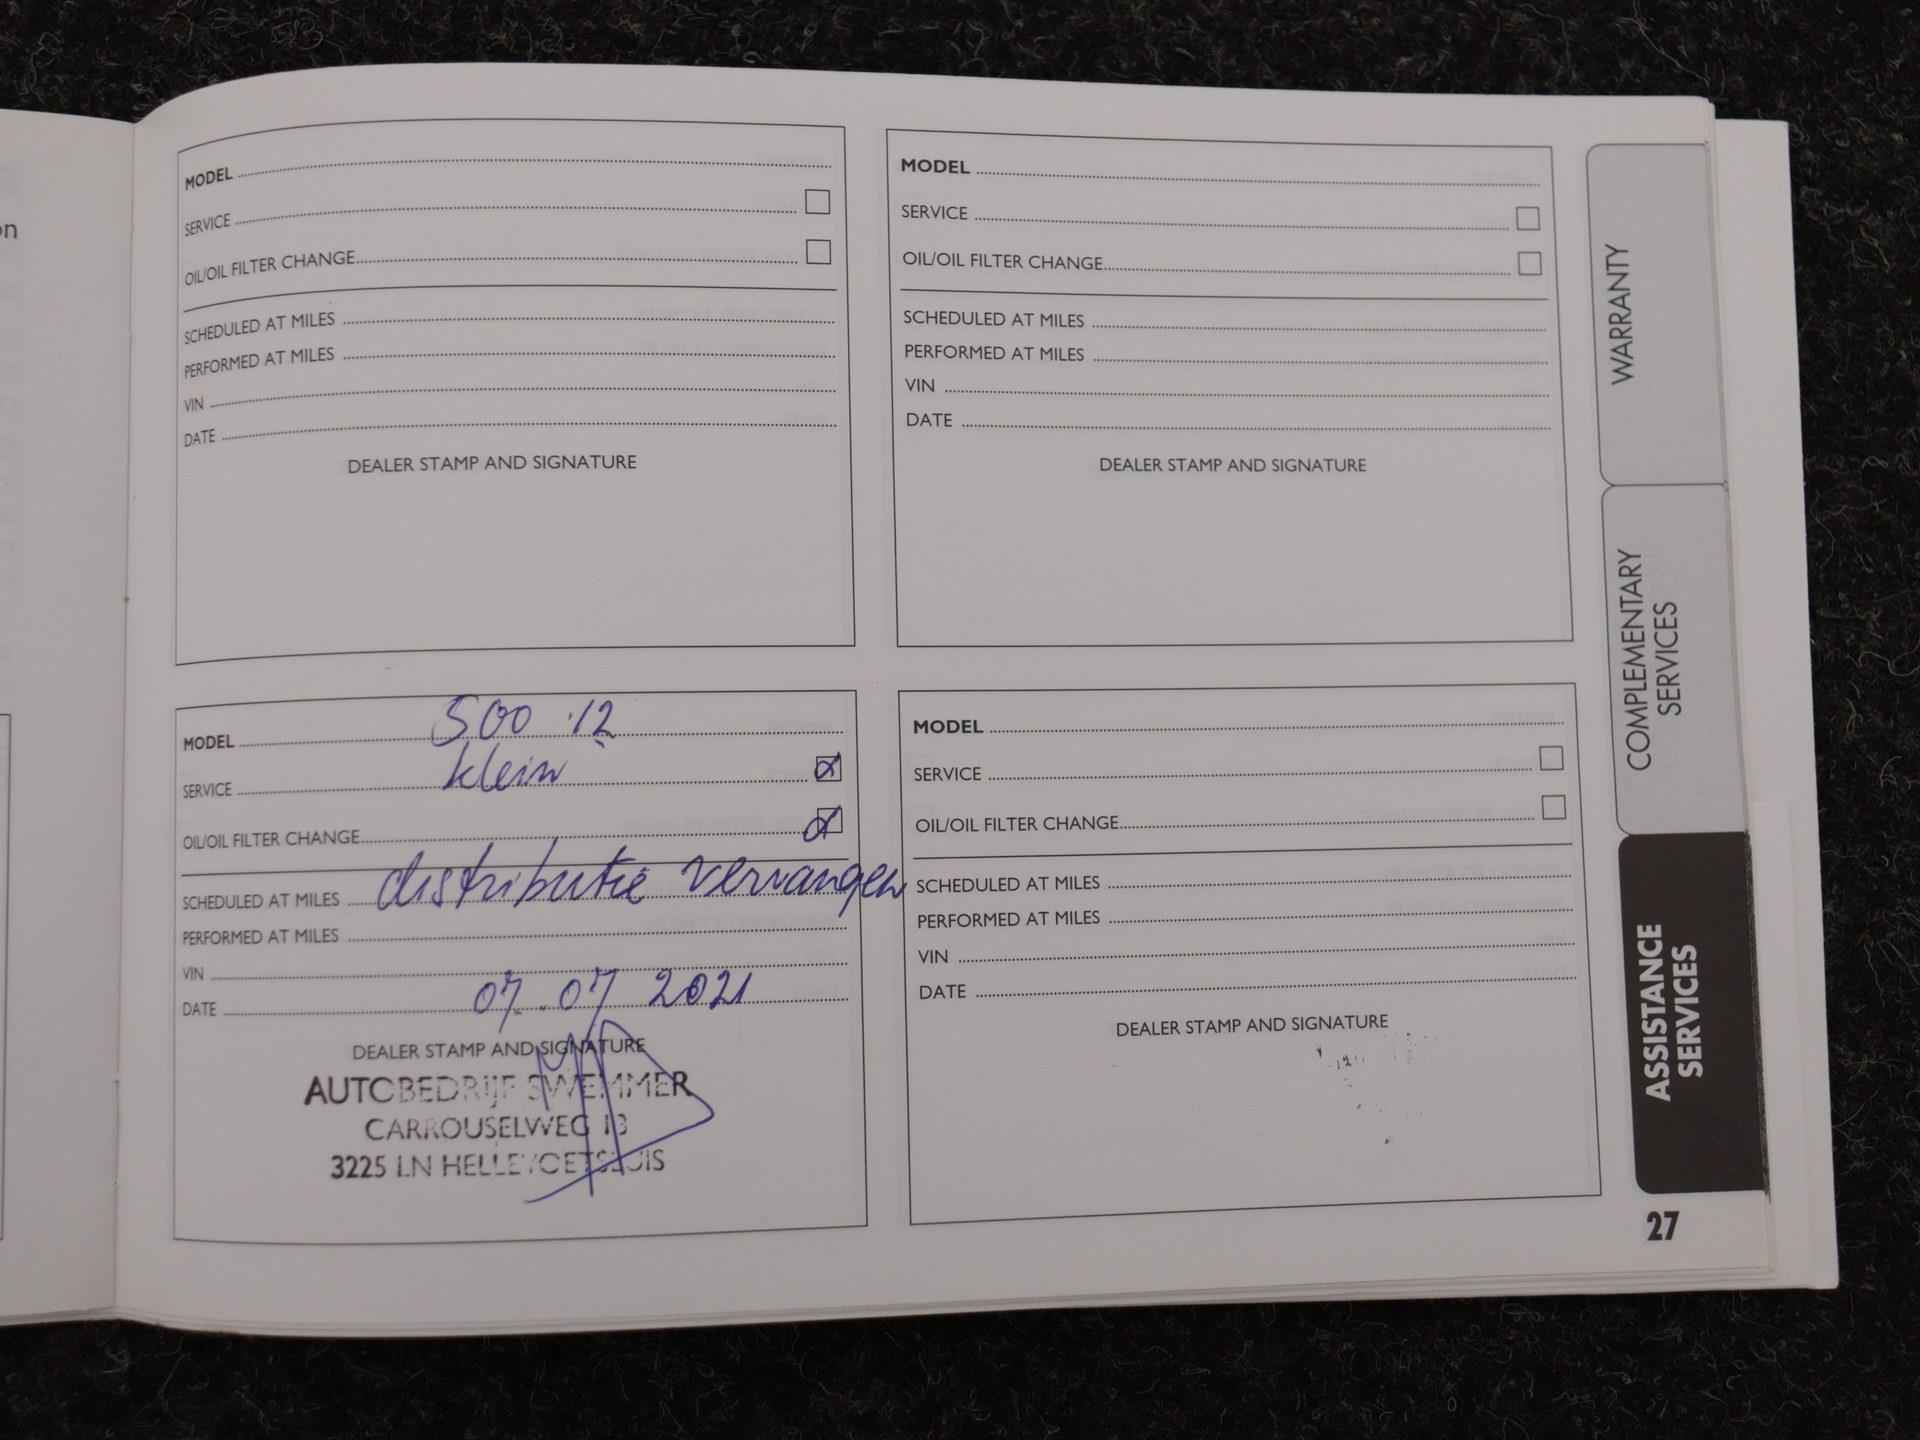 on
MODEL
SERVICE
OIL/OIL FILTER CHANGE
SCHEDULED AT MILES
PERFORMED AT MILES
VIN
DATE
DEALER STAMP AND SIGNATURE
MODEL
SERVICE
OIL/OIL FILTER CHANGE
SCHEDULED AT MILES
PERFORMED AT MILES
VIN
DATE
DEALER STAMP AND SIGNATURE
MODEL 500
SERVICE klein
OIL/OIL FILTER CHANGE
SCHEDULED AT MILES distributie vervangen
PERFORMED AT MILES
VIN
DATE 07.07 2021
DEALER STAMP AND SIGNATURE
AUTOBEDRIJF SWEMMER
CARROUSELWEG 13
3225 LN HELLEVOETSLUIS
MODEL
SERVICE
OIL/OIL FILTER CHANGE
SCHEDULED AT MILES
PERFORMED AT MILES
VIN
DATE
DEALER STAMP AND SIGNATURE
WARRANTY
COMPLEMENTARY
SERVICES
ASSISTANCE
SERVICES
27